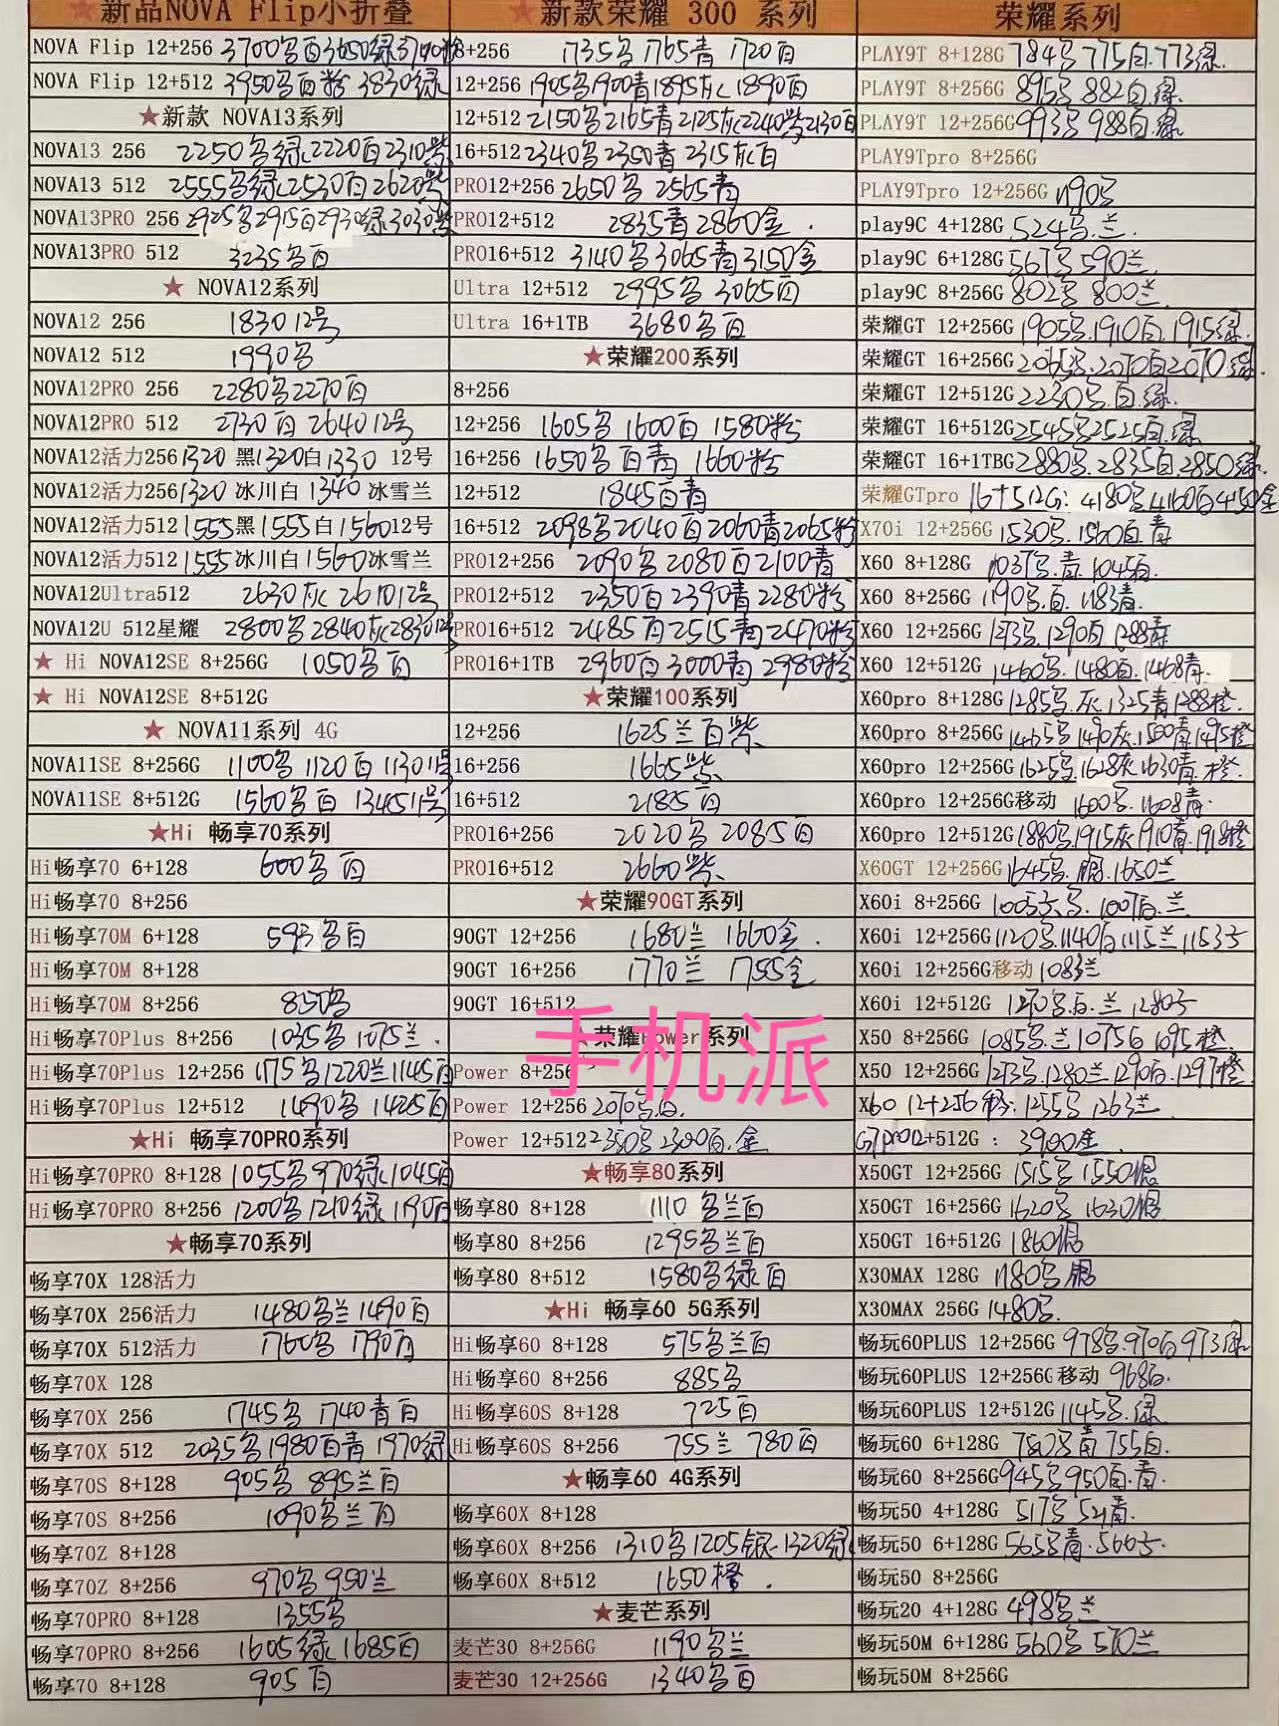 ★新品NOVA Flip小折叠
NOVA Flip 12+256 3700名百3650绿3740粉
NOVA Flip 12+512 3950名百粉 3830绿
★新款 NOVA13系列
NOVA13 256 2250名绿2220百2310紫
NOVA13 512 2555名绿2530百2620紫
NOVA13PRO 256 2925名2915百2930绿3030紫
NOVA13PRO 512 3235名百
★ NOVA12系列
NOVA12 256 1830 12号
NOVA12 512 1990名
NOVA12PRO 256 2280名2270百
NOVA12PRO 512 2730百 2640 12号
NOVA12活力256 1320 黑1320白1330 12号
NOVA12活力256 1320 冰川白 1340 冰雪兰
NOVA12活力512 1555黑1555白1560 12号
NOVA12活力512 1555冰川白1560冰雪兰
NOVA12Ultra512 2630灰 2610 12号
NOVA12U 512星耀 2800名2840灰2830 12号
★ Hi NOVA12SE 8+256G 1050名百
★ Hi NOVA12SE 8+512G
★ NOVA11系列 4G
NOVA11SE 8+256G 1100名 1120百 1130 11号
NOVA11SE 8+512G 1560名百 1345 11号
★Hi 畅享70系列
Hi畅享70 6+128 600名百
Hi畅享70 8+256
Hi畅享70M 6+128 595名百
Hi畅享70M 8+128
Hi畅享70M 8+256 850名
Hi畅享70Plus 8+256 1035名 1075兰.
Hi畅享70Plus 12+256 1175名1220兰1145百
Hi畅享70Plus 12+512 1490名 1425百
★Hi 畅享70PRO系列
Hi畅享70PRO 8+128 1055名970绿1045百
Hi畅享70PRO 8+256 1200名1210绿1190百
★畅享70系列
畅享70X 128活力
畅享70X 256活力 1480名兰 1490百
畅享70X 512活力 1760名 1790百
畅享70X 128
畅享70X 256 1745名 1740青百
畅享70X 512 2035名1980百青 1970绿
畅享70S 8+128 905名 895兰百
畅享70S 8+256 1090名兰百
畅享70Z 8+128
畅享70Z 8+256 970名 950兰
畅享70PRO 8+128 1355名
畅享70PRO 8+256 1605绿 1685百
畅享70 8+128 905百
★新款荣耀 300 系列
8+256 1735名 1765青 1720百
12+256 1905名1900青1895灰1890百
12+512 2150名2165青2125灰2240紫2130百
16+512 2340名2350青2315灰百
PRO12+256 2650名 2565青
PRO12+512 2835青 2860金.
PRO16+512 3140名3065青3150金
Ultra 12+512 2995名 3065百
Ultra 16+1TB 3680名百
★荣耀200系列
8+256
12+256 1605名 1600百 1580粉
16+256 1650名百青 1660粉
12+512 1845百青
16+512 2098名2040百2060青2065粉
PRO12+256 2090名2080百2100青
PRO12+512 2350百2390青2280粉
PRO16+512 2485百2515青2470粉
PRO16+1TB 2960百3000青2980粉
★荣耀100系列
12+256 1625兰百紫
16+256 1665紫
16+512 2185百
PRO16+256 2020名 2085百
PRO16+512 2660紫
★荣耀90GT系列
90GT 12+256 1680兰 1660金.
90GT 16+256 1770兰 1755金
90GT 16+512
★荣耀Power系列
Power 8+256
Power 12+256 2070名百.
Power 12+512 2350名2300百.金
★畅享80系列
畅享80 8+128 1110 名兰百
畅享80 8+256 1295名兰百
畅享80 8+512 1580名绿百
★Hi 畅享60 5G系列
Hi畅享60 8+128 575名兰百
Hi畅享60 8+256 885名
Hi畅享60S 8+128 725百
Hi畅享60S 8+256 755兰 780百
★畅享60 4G系列
畅享60X 8+128
畅享60X 8+256 1310名1205银1320绿
畅享60X 8+512 1650橙.
★麦芒系列
麦芒30 8+256G 1190名兰
麦芒30 12+256G 1340名百
荣耀系列
PLAY9T 8+128G 784名775白.773绿.
PLAY9T 8+256G 895名 882百.绿.
PLAY9T 12+256G 993名 988百.绿
PLAY9Tpro 8+256G
PLAY9Tpro 12+256G 1190名
play9C 4+128G 524名.兰.
play9C 6+128G 567名590兰
play9C 8+256G 802名 800兰.
荣耀GT 12+256G 1905名.1910百.1915绿.
荣耀GT 16+256G 2065名.2070百2070绿.
荣耀GT 12+512G 2230名.百.绿.
荣耀GT 16+512G 2545名2525百.绿
荣耀GT 16+1TBG 2880名.2835百2850绿.
荣耀GTpro 16+512G: 4180名4160百4150金
X70i 12+256G 1530名.1560百.青
X60 8+128G 1037名.青.1045百.
X60 8+256G 1190名.百.1183青.
X60 12+256G 1273名.1290百 1288青
X60 12+512G 1460名.1480百.1468青.
X60pro 8+128G 1285名.灰.1325青1288橙.
X60pro 8+256G 1465名1490灰.1500青1495橙
X60pro 12+256G 1625名.1628灰1630青.橙.
X60pro 12+256G移动 1600名.1608青.
X60pro 12+512G 1880名.1915灰1910青.1918橙
X60GT 12+256G 1645名.银.1650兰
X60i 8+256G 1007百.兰.
X60i 12+256G 1120名.1140百1115兰
X60i 12+256G移动 1083兰
X60i 12+512G 1270名.百.兰
X50 8+256G 1085名.兰 1095橙.
X50 12+256G 1273名.1280兰1290百.1297橙.
X60 12+256移: 1255名 1263兰
GTpro12+512G : 3900金
X50GT 12+256G 1515名 1550银
X50GT 16+256G 1620名 1630银
X50GT 16+512G 1860银
X30MAX 128G 1180名 银
X30MAX 256G 1480名.
畅玩60PLUS 12+256G 978名.970百973绿
畅玩60PLUS 12+256G移动 968百.
畅玩60PLUS 12+512G 1145名.绿
畅玩60 6+128G 青755百.
畅玩60 8+256G 945名950百.青.
畅玩50 4+128G 517名 521青.
畅玩50 6+128G 565名青.
畅玩50 8+256G
畅玩20 4+128G 498名兰
畅玩50M 6+128G 560名570兰
畅玩50M 8+256G
手机派